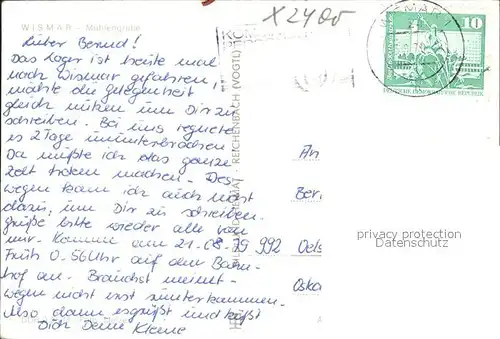 WISMAR - Mühlengrube
Lieber Bernd!
Das Lager ist heute mal
nach Wismar gefahren,
möchte die Gelegenheit
gleich nützen um Dir zu
schreiben. Bei uns regnete
es 2 Tage ununterbrochen
Da mußte ich das ganze
Zelt trocken machen. Des-
wegen kam ich auch nicht
dazu, um Dir zu schreiben.
grüße bitte wieder alle von
mir. Komme am 21.08.79
Früh 0.56 Uhr auf dem Bahn-
hof an. Brauchst meinet-
wegen nicht erst runterkommen.
Also dann es grüßt und küßt
Dich Deine Kleine
REICHENBACH (VOGTL)
X2400
10
DEUTSCHE DEMOKRATISCHE REPUBLIK
An
Ber
992 Oels
Oska
privacy protection